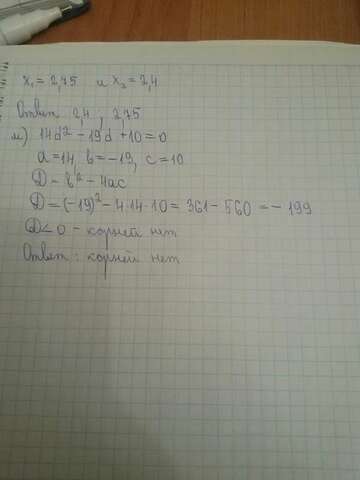 x₁ = 2,75 и x₂ = 2,4
Ответ 2,4 ; 2,75
м) 14d² - 19d + 10 = 0
a = 14 b = -19, c = 10
D = b² - 4ac
D = (-19)² - 4·14·10 = 361 - 560 = - 199
D < 0 - корней нет
Ответ : корней нет